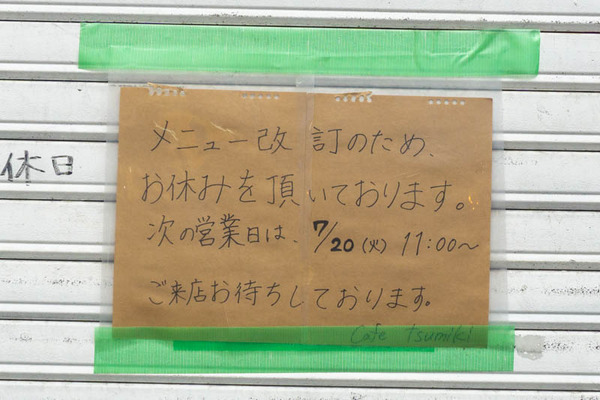 休日
メニュー改訂のため、
お休みを頂いております。
次の営業日は、7/20(火) 11:00〜
ご来店お待ちしております。
Cafe tsumiki